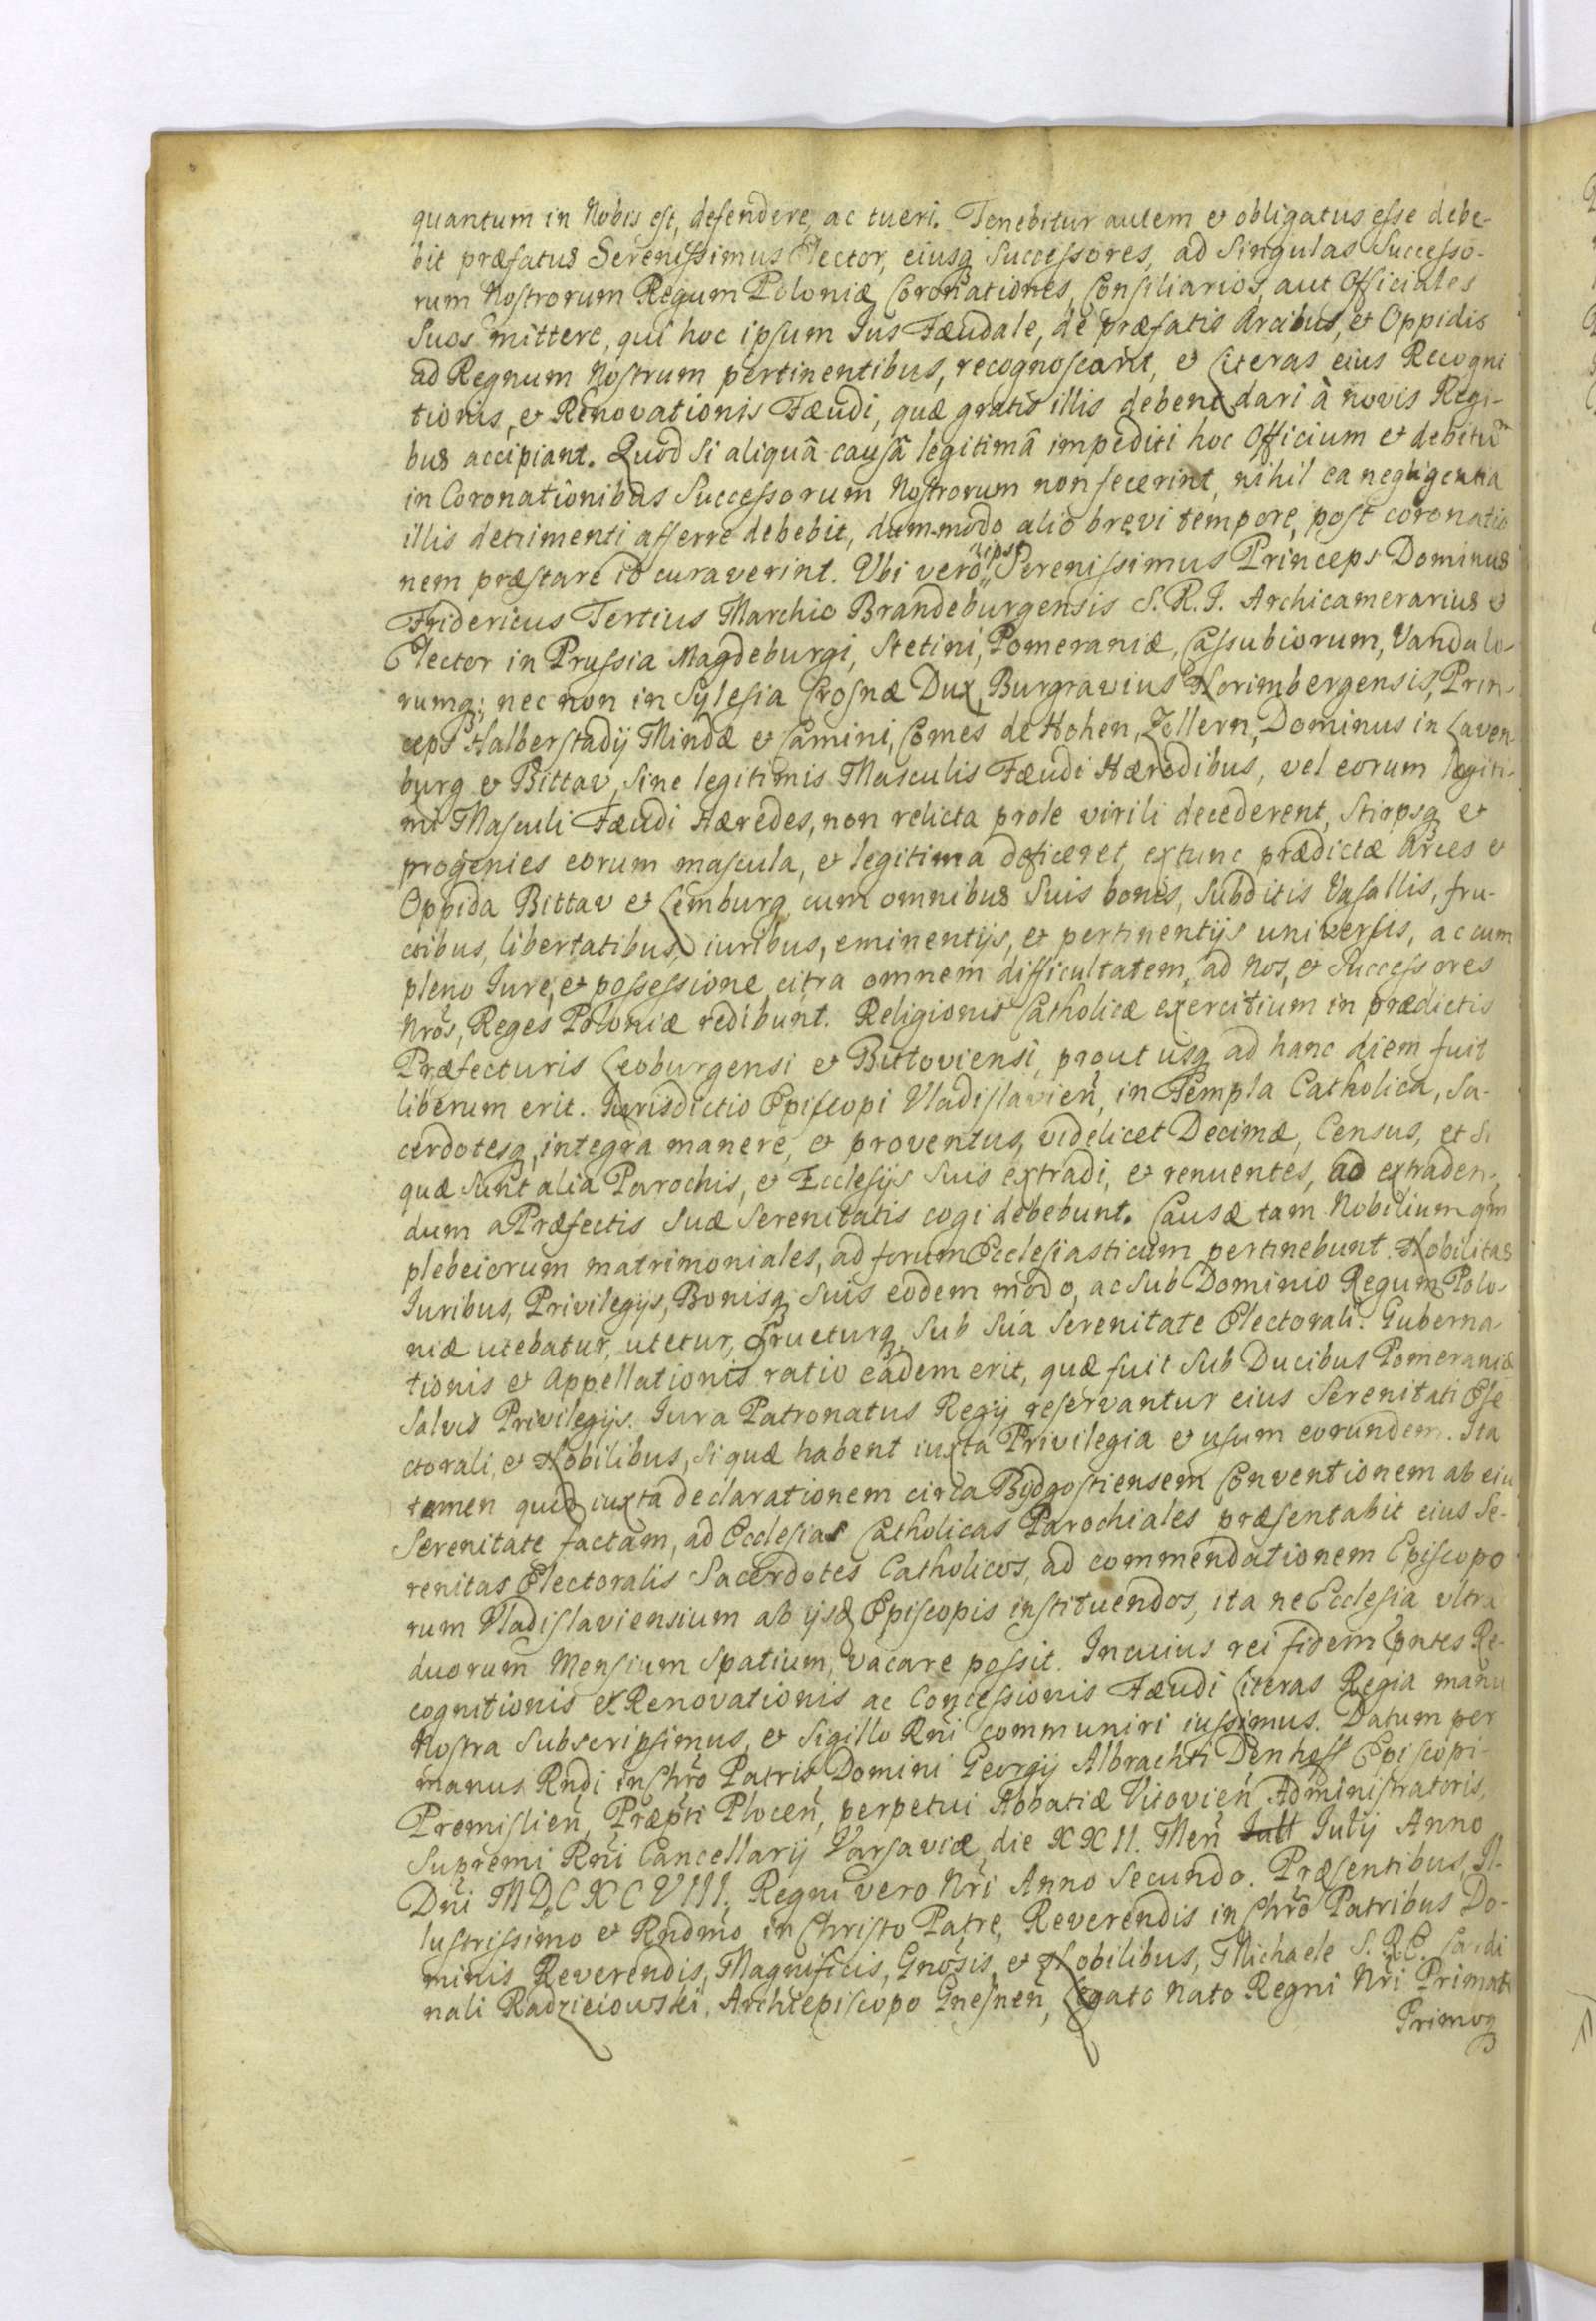 quantum in Nobis est, defendere, ac tueri. Tenebitur autem et obligatus esse debe-
bit præfatus Serenissimus Elector, eiusq Successores, ad Singulas Successo-
rum Nostrorum Regum Poloniæ Coronationes, Consiliarios, aut Officiales
Suos mittere, qui hoc ipsum Ius Fæudale, de præfatis Arcibus, et Oppidis
ad Regnum Nostrum pertinentibus, recognoscant, et Literas eius Recogni
tionis, et Renovationis Fæudi, quæ gratis illis debent dari à novis Regi-
bus accipiant. Quod Si aliquâ causâ legitimâ impediti hoc Officium et debitũ
in Coronationibus Successorum Nostrorum non fecerint, nihil ea negligentia
illis detrimenti afferre debebit, dum-modo alio brevi tempore, post coronatio
nem præstare id curaverint. Ubi vero ipse Serenissimus Princeps Dominus
Fridericus Tertius Marchio Brandeburgensis S. R. I. Archicamerarius et
Elector in Prussia Magdeburgi, Stetini, Pomeraniæ, Cassubiorum, Vandalo-
rumq; nec non in Sylesia Crosnæ Dux, Burgravius Norimbergensis, Prin-
ceps Halberstadij Mindæ et Camini, Comes de Hohen, Zollern, Dominus in Laven
burg et Bittav, Sine legitimis Masculis Fæudi Hæredibus, vel eorum legiti-
mi Masculi Fæudi Hæredes, non relicta prole virili decederent, Stirpsq et
progenies eorum mascula, et legitima deficeret, extunc prædictæ Arces et
Oppida Bittav et Lemburg cum omnibus Suis bonis, Subditis Vasallis, fru-
ctibus, libertatibus, iuribus, eminentijs, et pertinentijs universis, ac cum
pleno Iure, et possessione citra omnem difficultatem, ad Nos, et Successores
Nrõs, Reges Poloniæ redibunt. Religionis Catholicæ exercitium in prædictis
Præfecturis Leoburgensi et Buttoviensi, prout usq ad hanc diem fuit
liberum erit. Iurisdictio Episcopi Vladislavien̄, in Templa Catholica, Sa-
cerdotesq, integra manere, et proventus, videlicet Decimæ, Census, et Si
quæ Sunt alia Parochis, et Ecclesijs Suis extradi, et renuentes, ad extraden-
dum a Præfectis Suæ Serenitatis cogi debebunt. Causæ tam Nobilium qm̃
plebeiorum matrimoniales, ad forum Ecclesiasticum pertinebunt. Nobilitas
Iuribus, Privilegijs, Bonisq Suis eodem modo, ac Sub Dominio Regum Polo-
niæ utebatur, utetur, frueturq Sub Sua Serenitate Electorali. Guberna-
tionis et Appellationis ratio eadem erit, quæ fuit Sub Ducibus Pomeraniæ
Salvis Privilegijs. Iura Patronatus Regij reservantur eius Serenitati Ele
ctorali, et Nobilibus, Si quæ habent iuxta Privilegia et usum eorundem. Ita
tamen quod iuxta declarationem circa Bydgostiensem Conventionem ab eiu
Serenitate factam, ad Ecclesias Catholicas Parochiales præsentabit eius Se-
renitas Electoralis Sacerdotes Catholicos, ad commendationem Episcopo
rum Vladislaviensium ab ijsd Episcopis instituendos, ita ne Ecclesia ultra
duorum Mensium Spatium, vacare possit. In cuius rei fidem pn̄tes Re-
cognitionis et Renovationis ac Concessionis Fæudi Literas Regia manu
Nostra Subscripsimus, et Sigillo Rñi communiri iussimus. Datum per
manus Rndi in Chrõ Patris Domini Georgij Albrachti Denhoff Episcopi-
Premislien̄, Præpti Plocen̄, perpetui Abbatiæ Vitovien̄ Administratoris,
Supremi Rñi Cancellarij Varsaviæ, die XXII. Men̄ Iull Iulij Anno
Dñi MDCXCVIII. Regni vero Nr̃i Anno Secundo. Præsentibus, Il-
lustrissimo et Rndmo in Christo Patre, Reverendis in Chrõ Patribus Do-
minis Reverendis, Magnificis, Gnõsis, et Nobilibus, Michaele S. R. E. Cardi
nali Radzieiowski, Archiepiscopo Gnesnen̄, Legato Nato Regni Nr̃i Primate
Primoq